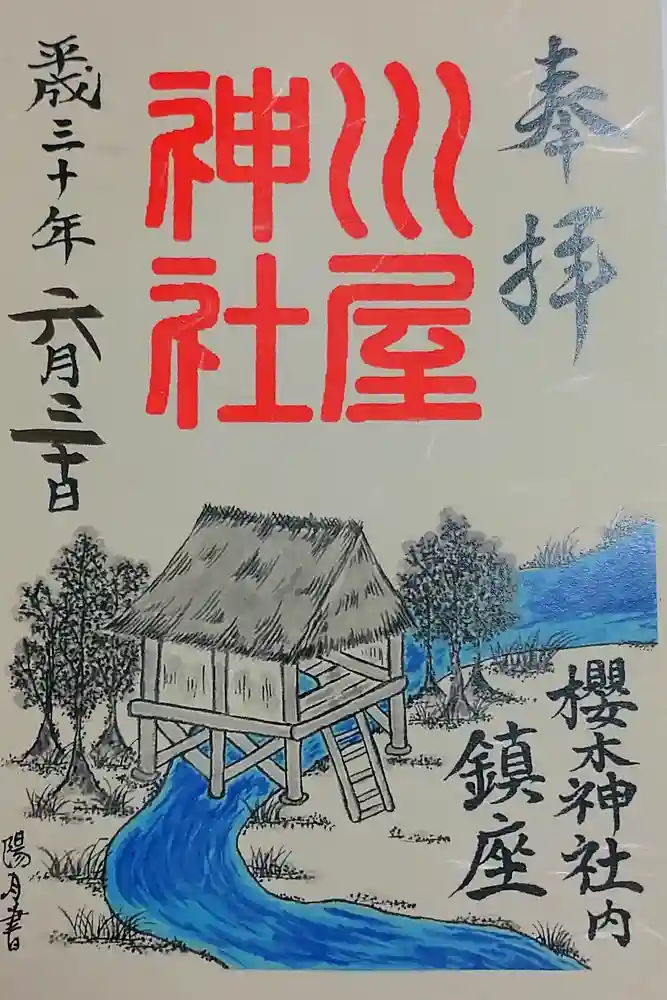 奉拝
川屋
神社
櫻木神社内
鎮座
平成三十年六月三十日
陽月書